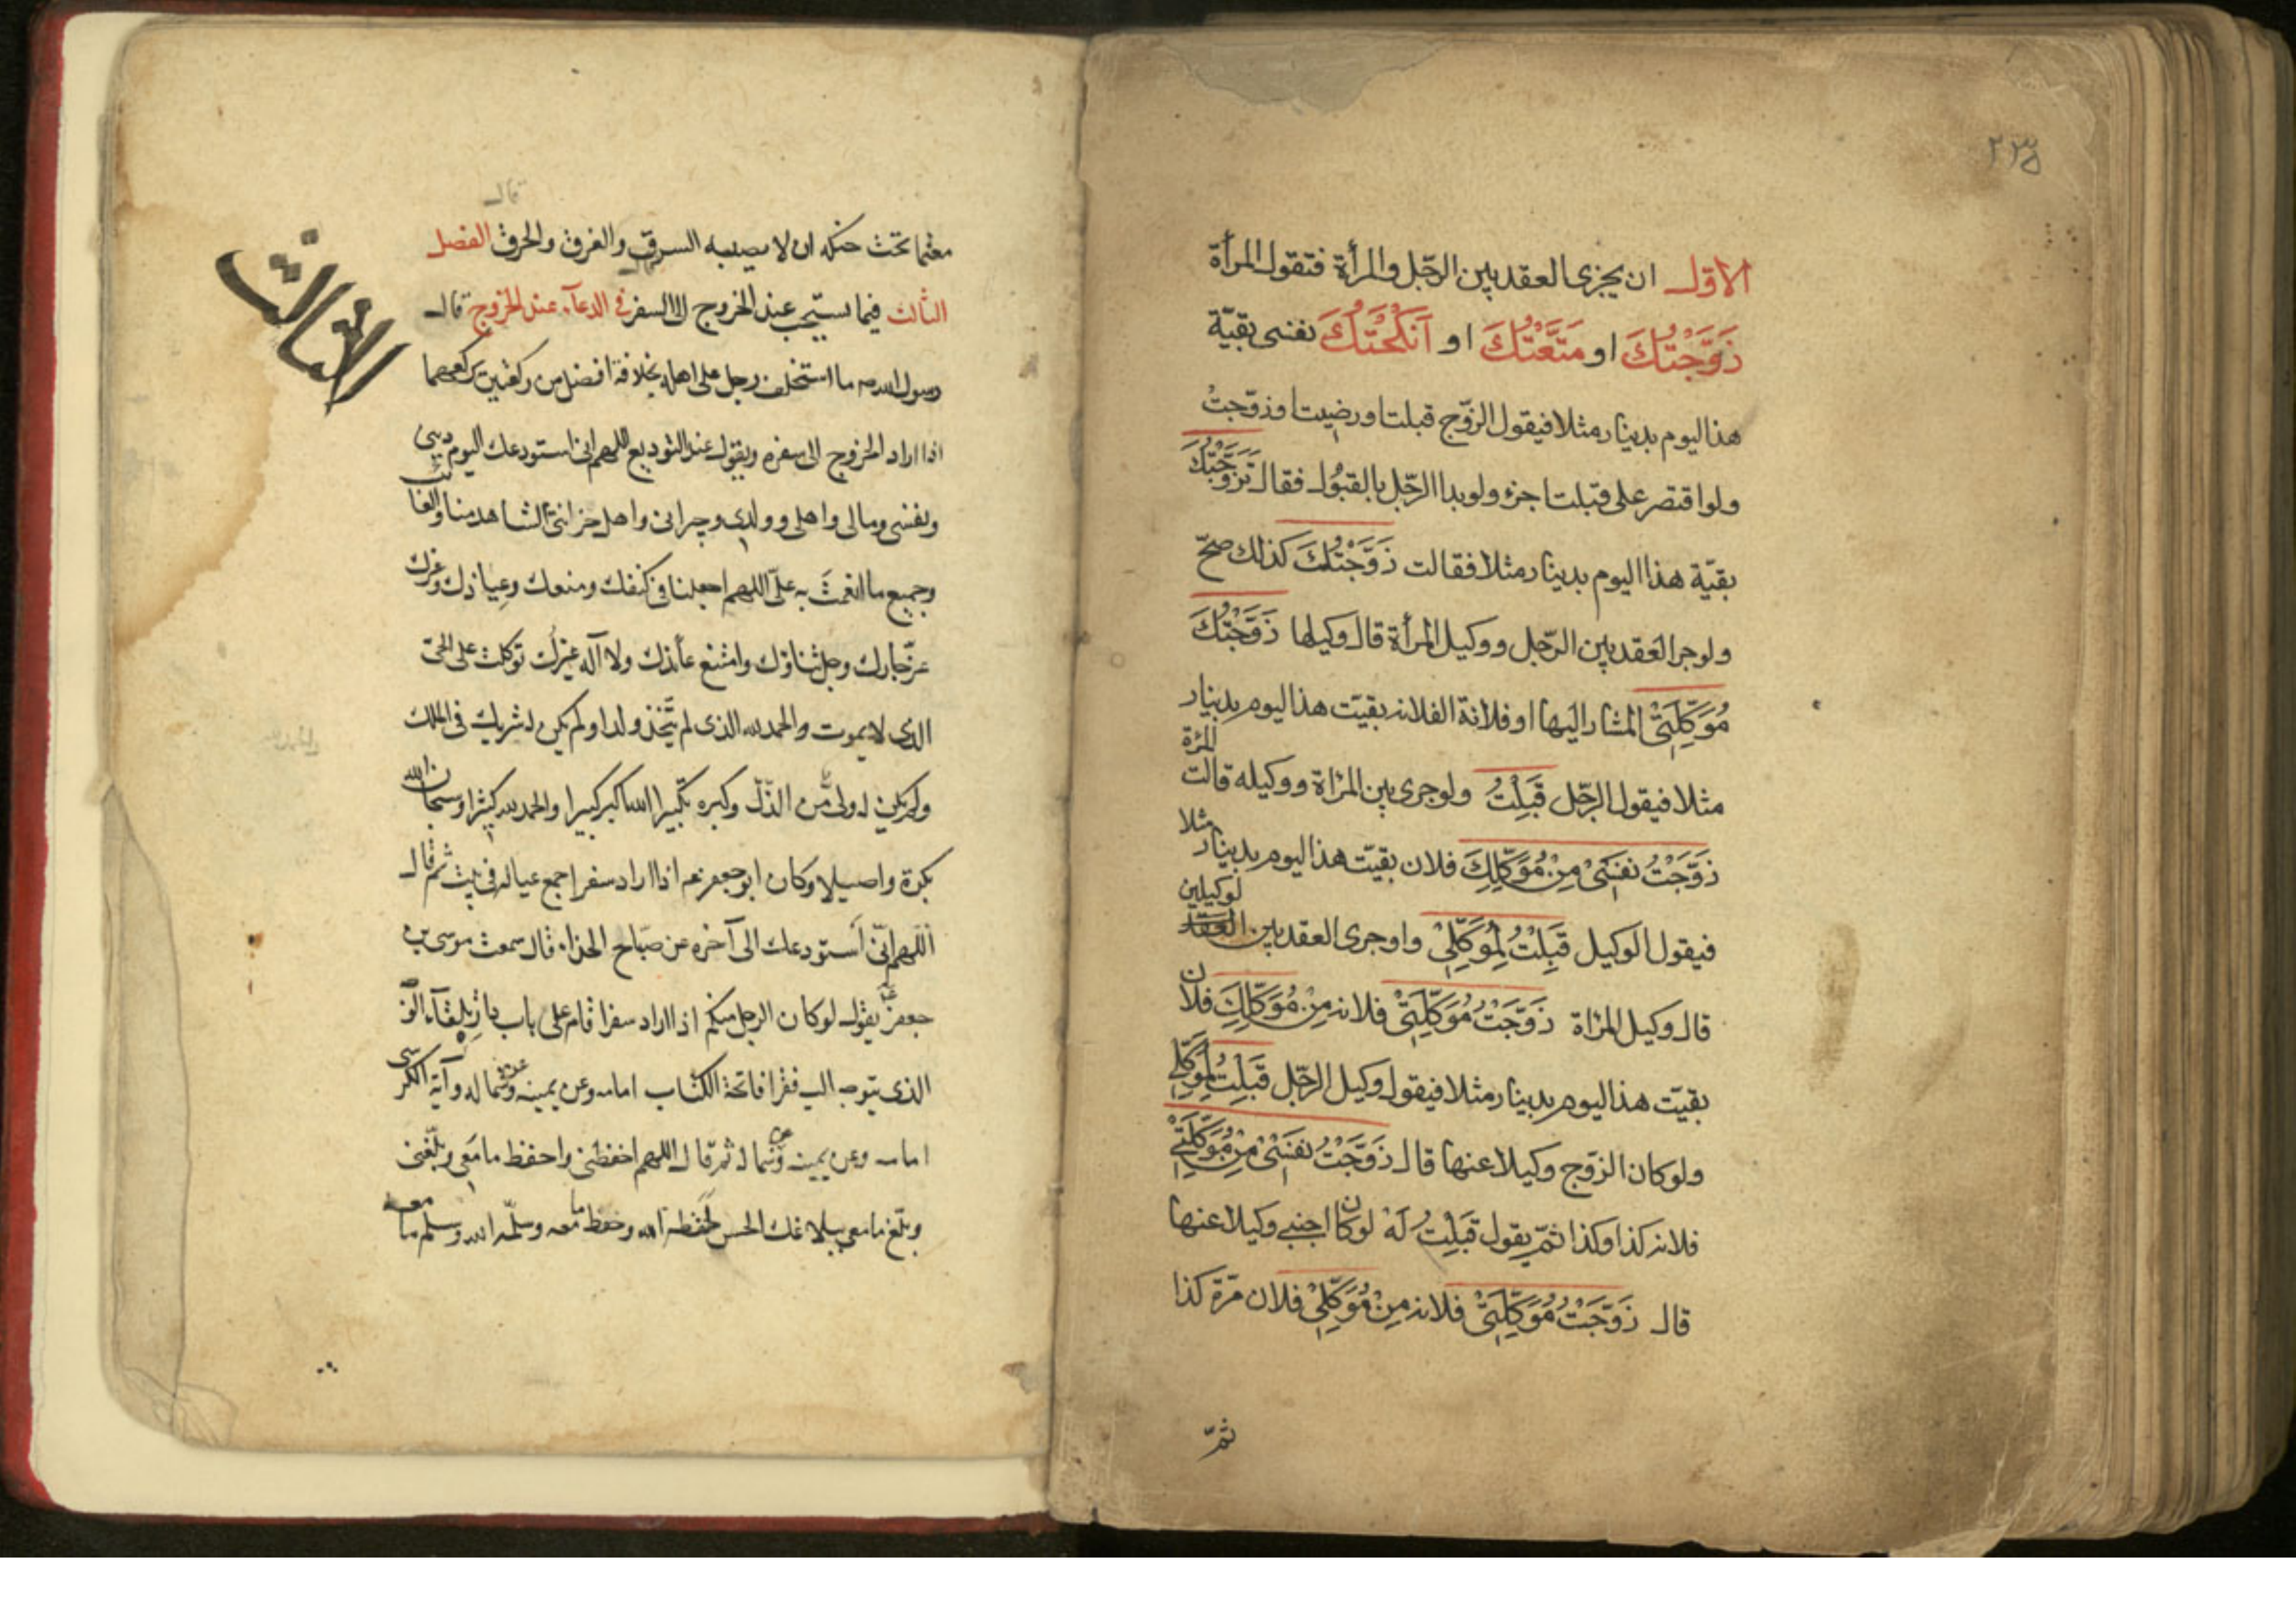 ٢٣٥
الاوّل ان يجزى العقد بين الرجّل والمرأة فتقول المرأة
زَوَّجْتُكَ او مَتَّعْتُكَ او اَنْكَحْتُكَ نفسى بقيّة
هذا اليوم بدينار مثلا فيقول الزوّج قبلت او رضيت او زوّجتُ
ولو اقتصر على قبلت اجزء ولو بدا الرجّل بالقبول فقال تَزَوَّجْتُكَ
بقيّة هذا اليوم بدينار مثلا فقالت زَوَّجْتُكَ كذلك صحّ
ولو جرا العقد بين الرجّل ووكيل المرأة قال وكيلها زَوَّجْتُكَ
مُوَكِّلَتِىْ المشار اليها او فلانة الفلانه بقيّت هذا اليوم بدينار
مثلا فيقول الرجّل قَبِلْتُ ولو جرى بين المرٔاة ووكيله قالت المرٔة
زَوَّجْتُ نفسَىْ مِنْ مُوَكِّلِكَ فلان بقيّت هذا اليوم بدينار مثلا
فيقول الوكيل قَبِلْتُ لِمُوَكِّلِىْ واو جرى العقد بين العقد لوكيلين
قال وكيل المرٔاة زَوَّجْتُ مُوَكِّلَتِىْ فلانه مِنْ مُوَكِّلِكَ فلان
بقيّت هذا اليوم بدينار مثلا فيقول وكيل الرجّل قَبِلْتُ لِمُوَكِّلِى
ولو كان الزوّج وكيلا عنها قال زَوَّجْتُ نفسَىْ مِنْ مُوَكِّلَتِىْ
فلانه كذا وكذا ثمّ يقول قَبِلْتُ لَهْ لو كان اجنبى وكيلا عنها
قال زَوَّجْتُ مُوَكِّلَتِىْ فلانه مِنْ مُوَكِّلِىْ فلان مرّة كذا
ثمّ
قال
معتما تحت حنكه ان لا يصيبه السرق والغرق والحرق الفصل
الثالث فيما يستحب عند الخروج الى السفر فى الدعآء عند الخروج قال
رسول الله ص ما استخلف رجل على اهله بخلافة افضل من ركعتين يركعهما
اذا اراد الخروج الى سفره ويقول عند التوديع اللهم انى استودعك اليوم دينى
ونفسى ومالى واهلى وولدى وجيرانى واهل حزانتى الشاهد منا والغائب
وجميع ما انعمتَ به علىّ اللهم اجعلنا فى كنفك ومنعك وعياذك وعزك
عزّ جارك وجل ثناؤك وامتنع عائذك ولا آله غيرك توكلت على الحىّ
الذى لا يموت والحمد لله الذى لم يتّخذ ولدا ولم يكن له شريك فى الملك
ولم يكن له ولى من الذلّ وكبره تكبيرا الله اكبر كبيرا والحمد لله كثيرا وسبحان الله
بكرة واصيلا وكان ابو جعفر ع اذا اراد سفرا جمع عياله فى بيت ثم قال
اللهم انّى استودعك الى آخره عن صبَاح الحذاء قال سمعت موسى بن
جعفر ع يقول لو كان الرجل منكم اذا اراد سفرا قام على باب داره تلقآء الوجه
الذى يتوجه اليه فقرا فاتحة الكتاب امامه وعن يمينه وعن شماله وآية الكرسى
امامه وعن يمينه وعن شماله ثم قال اللهم احفظنى واحفظ ما معى وبلّغنى
وبلّغ ما معى ببلاغك الحسن لحفظه الله وحفظ ما معه وسلّمه الله وسلم ما معه